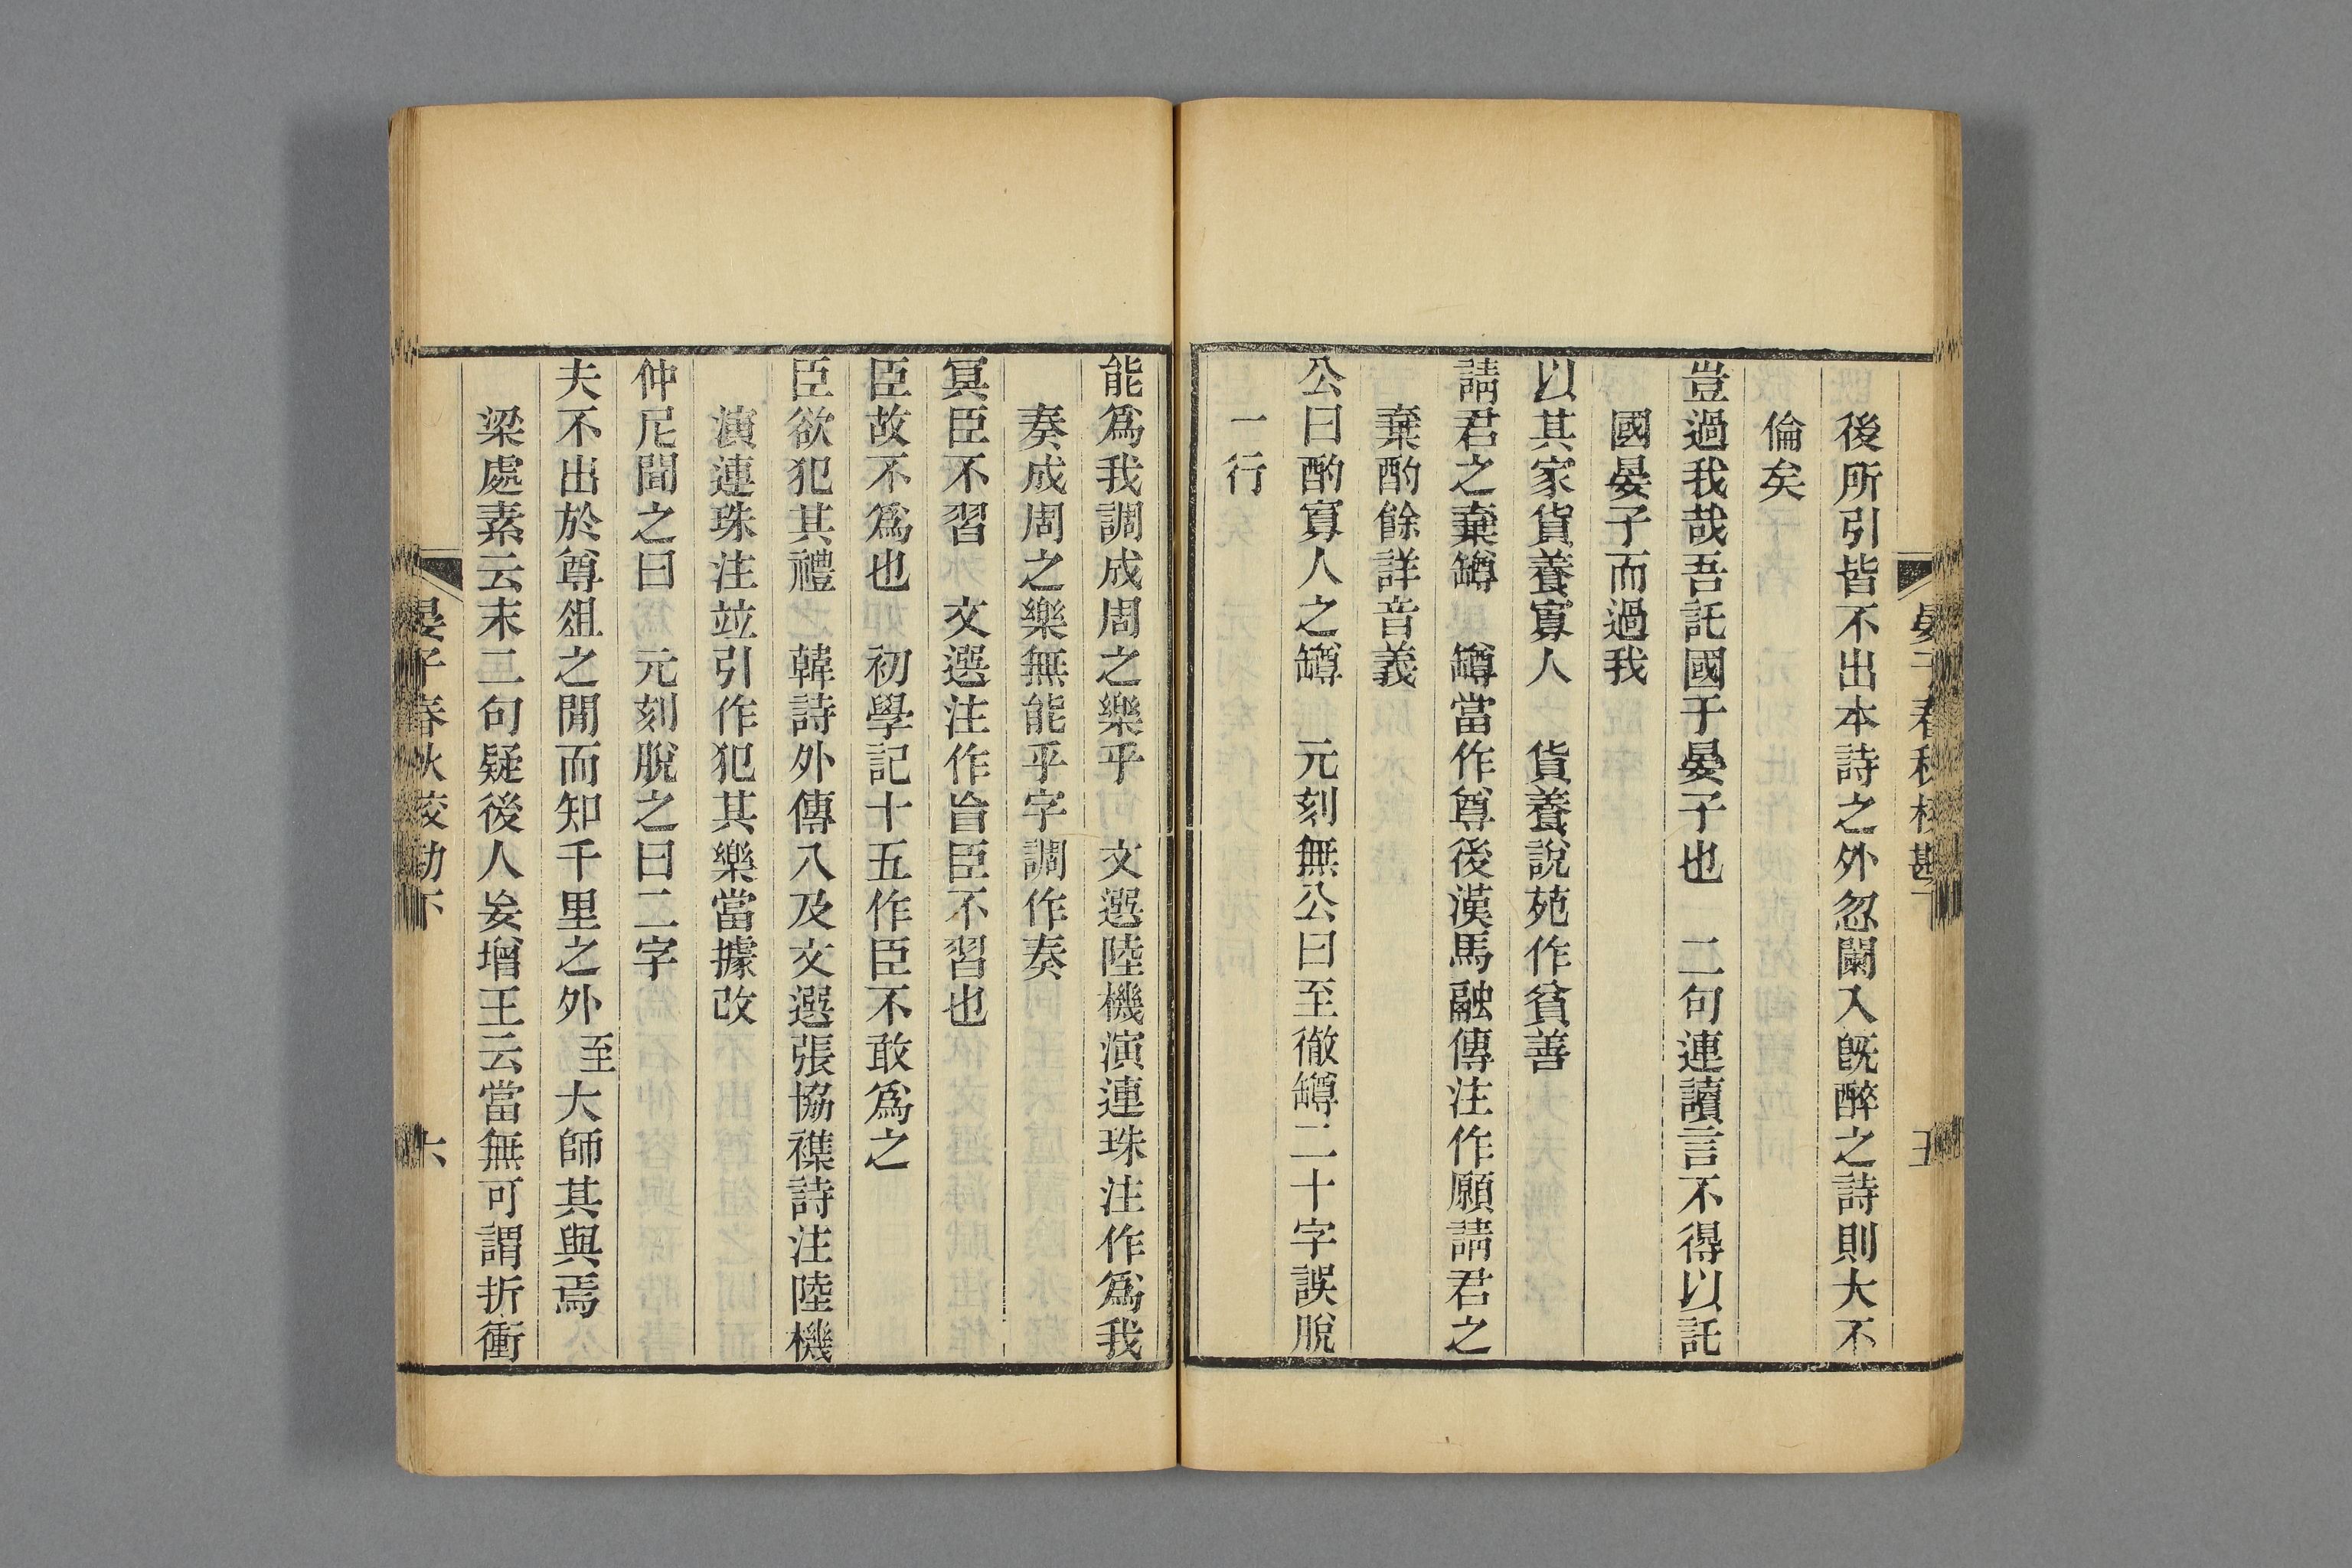 晏子春秋校勘下 五
後所引皆不出本詩之外忽闌入旣醉之詩則大不
倫矣
豈過我哉吾託國于晏子也 二句連讀言不得以託
國晏子而過我
以其家貨養寡人 貨養說苑作貧善
請君之棄罇 罇當作尊後漢馬融傳注作願請君之
棄酌餘詳音義
公曰酌寡人之罇 元刻無公曰至徹罇二十字誤脫
一行
能爲我調成周之樂乎 文選陸機演連珠注作爲我
奏成周之樂無能乎字調作奏
冥臣不習 文選注作盲臣不習也
臣故不爲也 初學記十五作臣不敢爲之
臣欲犯其禮 韓詩外傳八及文選張協襍詩注陸機
演連珠注竝引作犯其樂當據改
仲尼聞之曰 元刻脫之曰二字
夫不出於尊俎之閒而知千里之外至大師其與焉
梁處素云末二句疑後人妄增王云當無可謂折衝
晏子春秋校勘下 六